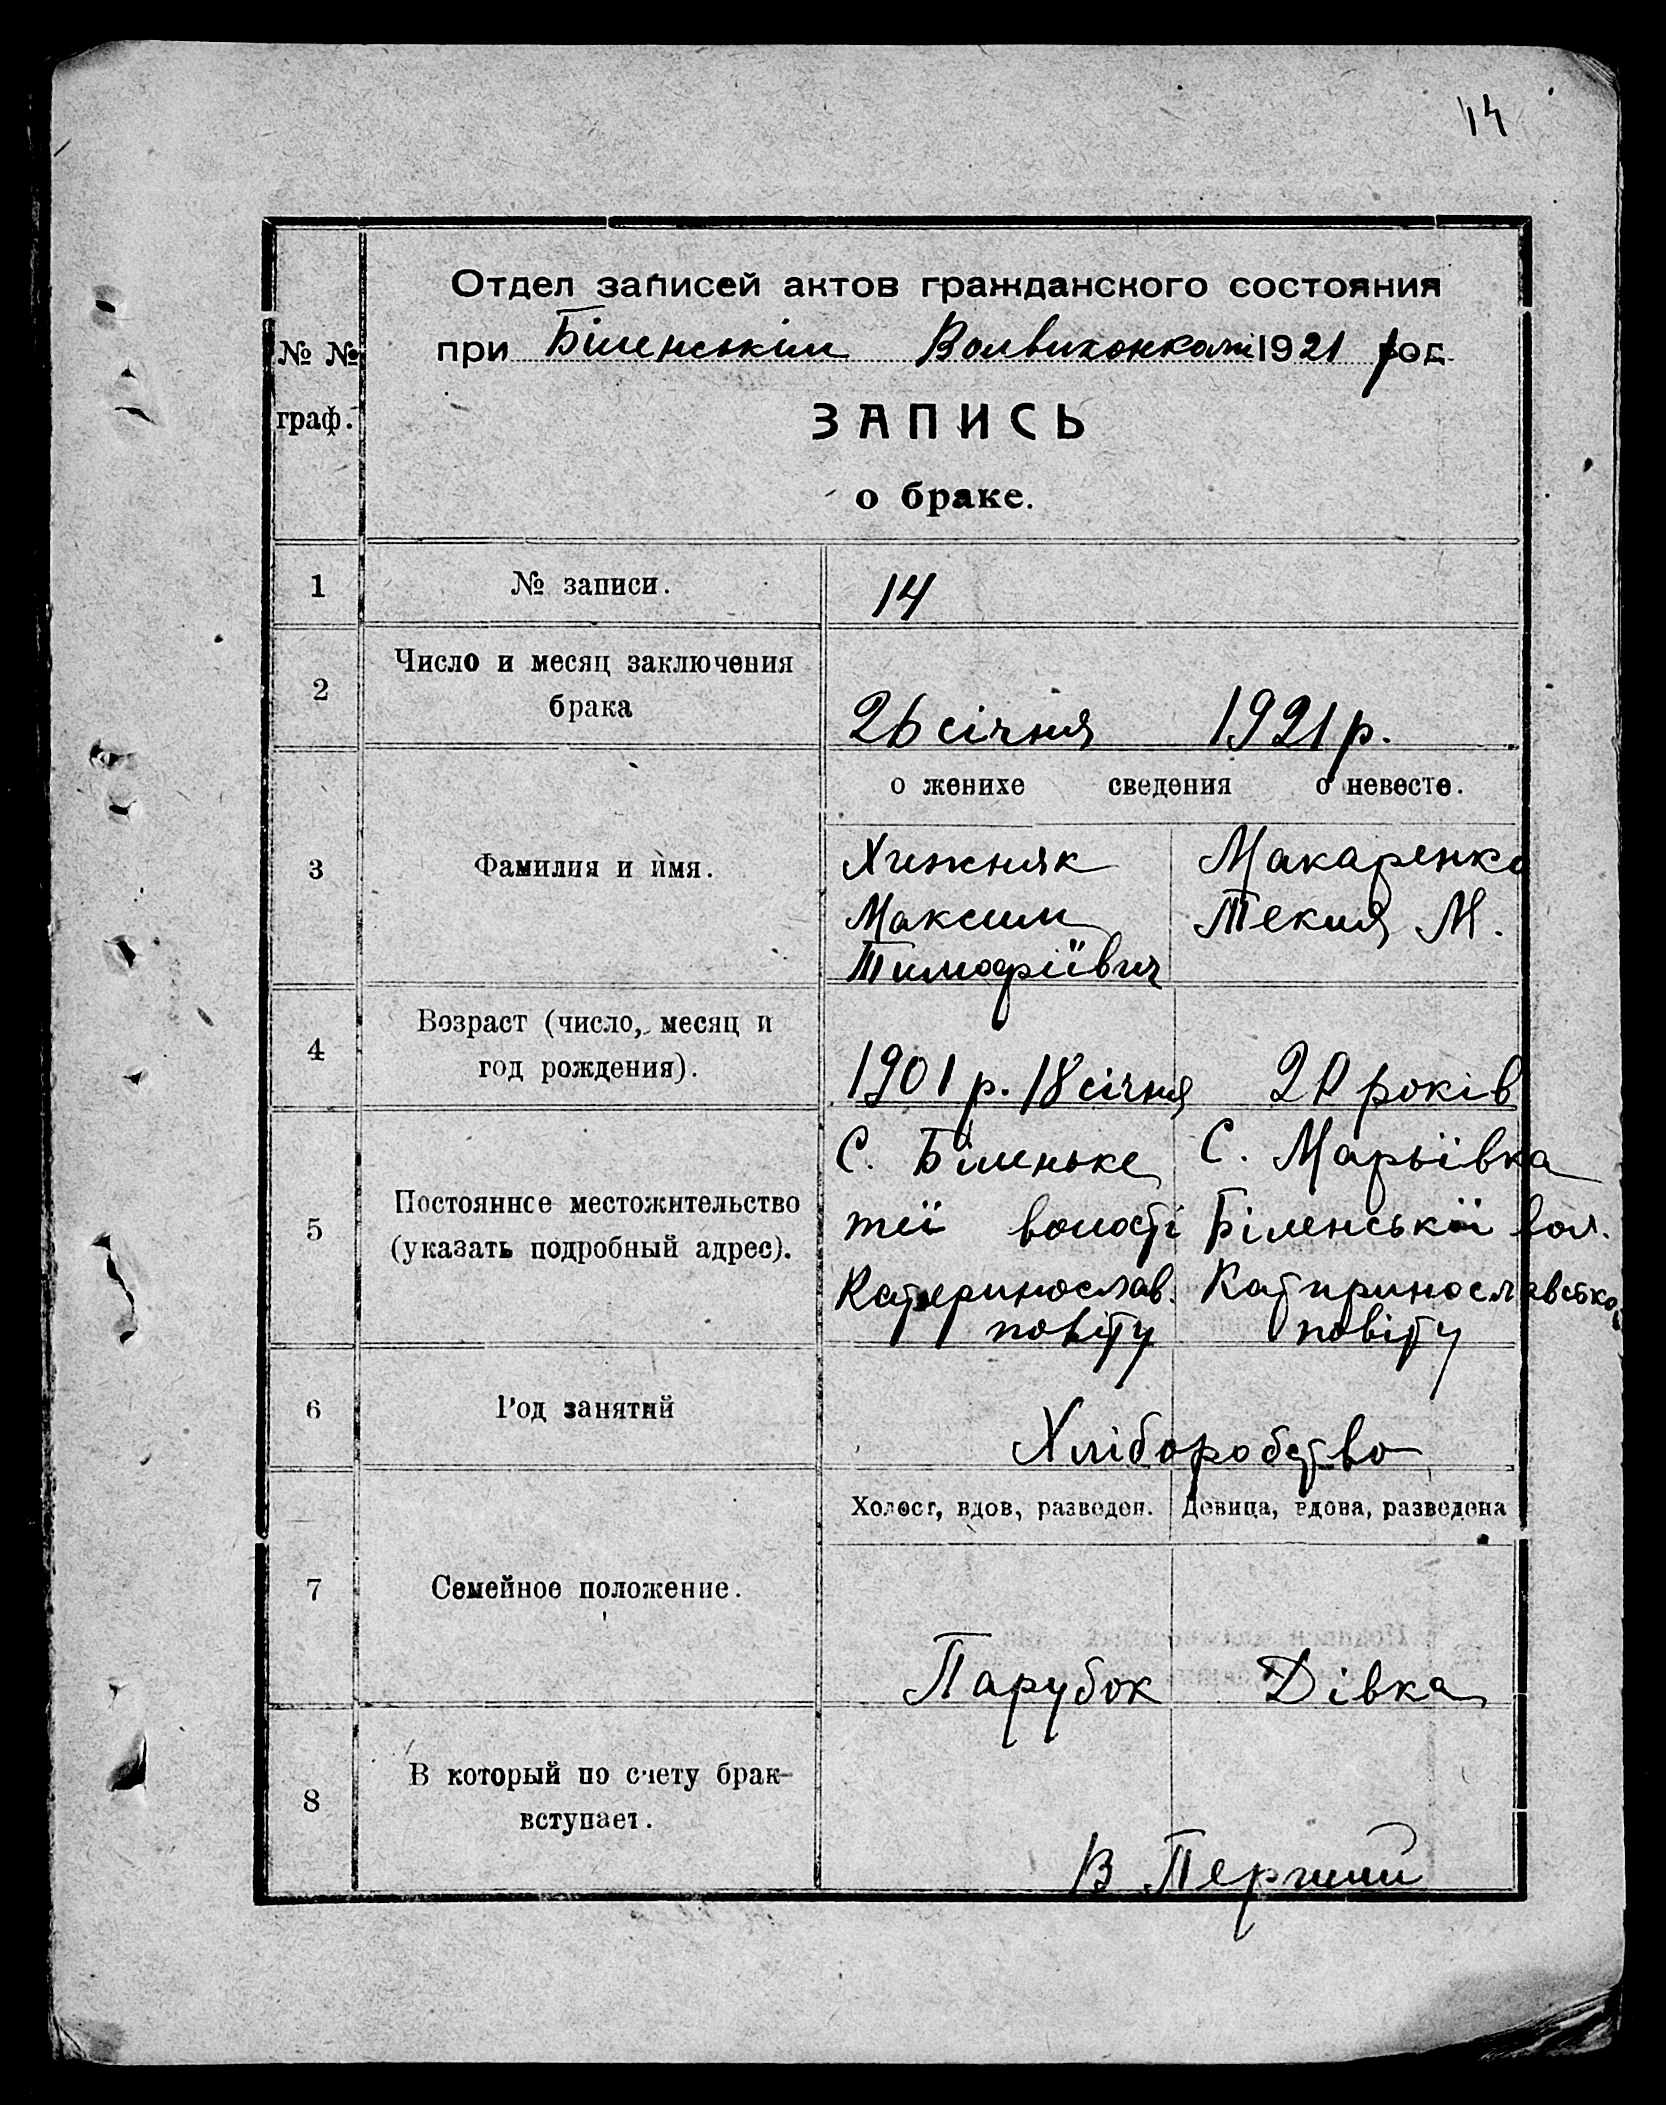 14
Отдел записей актов гражданского состояния
при Біленськім Волвиконкомі 1921 год
№ №
граф.
ЗАПИСЬ
о браке.
1 № записи. 14
2 Число и месяц заключения
брака
26 січня 1921 р.
о женихе сведения о невесте.
3 Фамилия и имя.
Хижняк Макаренко
Максим Текля М.
Тимофіївич
4 Возраст (число, месяц и
год рождения).
1901 р. 18 січня 20 років
5 Постоянное местожительство
(указать подробный адрес).
С. Біленьке С. Марьївка
тії волості Біленської вол.
Катеринослав. Катиринославсько
повіту повіту
6 Род занятий
Хліборобство
Холост, вдов, разведен. Девица, вдова, разведена
7 Семейное положение.
Парубок Дівка
8 В который по счету брак
вступает.
В Перший